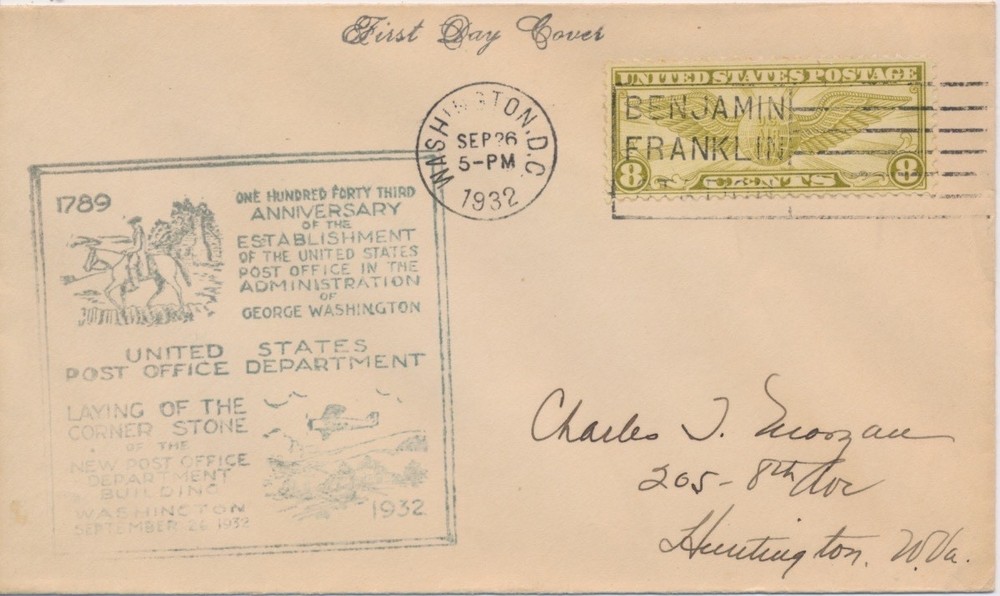 First Day Cover
WASHINGTON, D.C.
SEP 26
5-PM
1932
UNITED STATES POSTAGE
BENJAMIN
FRANKLIN
8 CENTS 8
1789
ONE HUNDRED FORTY THIRD
ANNIVERSARY
OF THE
ESTABLISHMENT
OF THE UNITED STATES
POST OFFICE IN THE
ADMINISTRATION
OF
GEORGE WASHINGTON
UNITED STATES
POST OFFICE DEPARTMENT
LAYING OF THE
CORNER STONE
OF THE
NEW POST OFFICE
DEPARTMENT
BUILDING
WASHINGTON
SEPTEMBER 26 1932
1932
Charles T. Morgan
205 - 8th Ave
Huntington. W.Va.